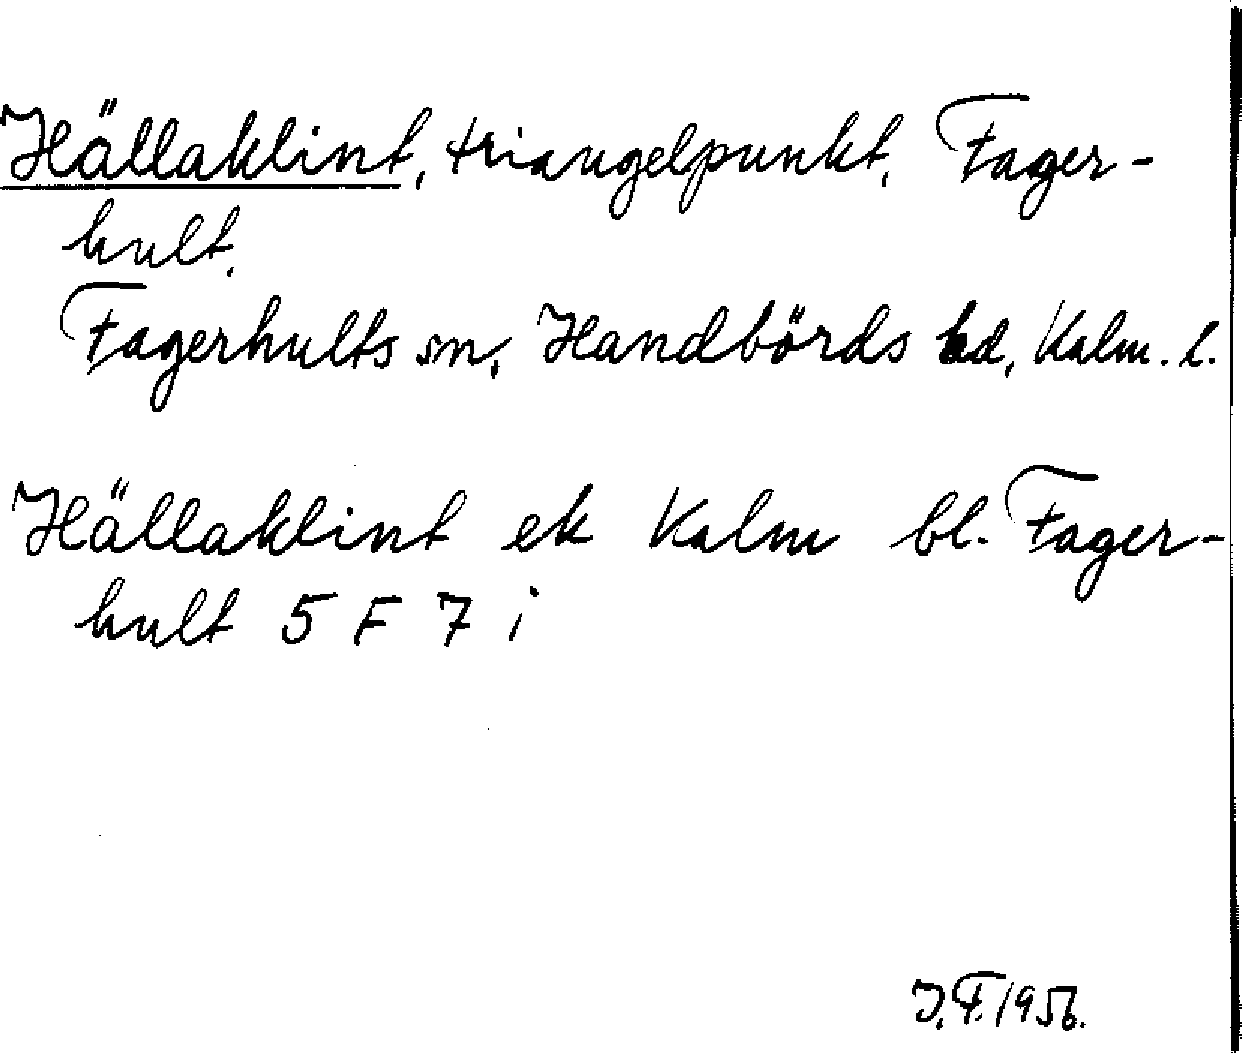 Hällaklint, triangelpunkt, Fager-
hult,
Fagerhults sn, Handbörds hd, Kalm. l.
Hällaklint ek Kalm bl. Fager-
hult 5 F 7 i
J.F. 1956.